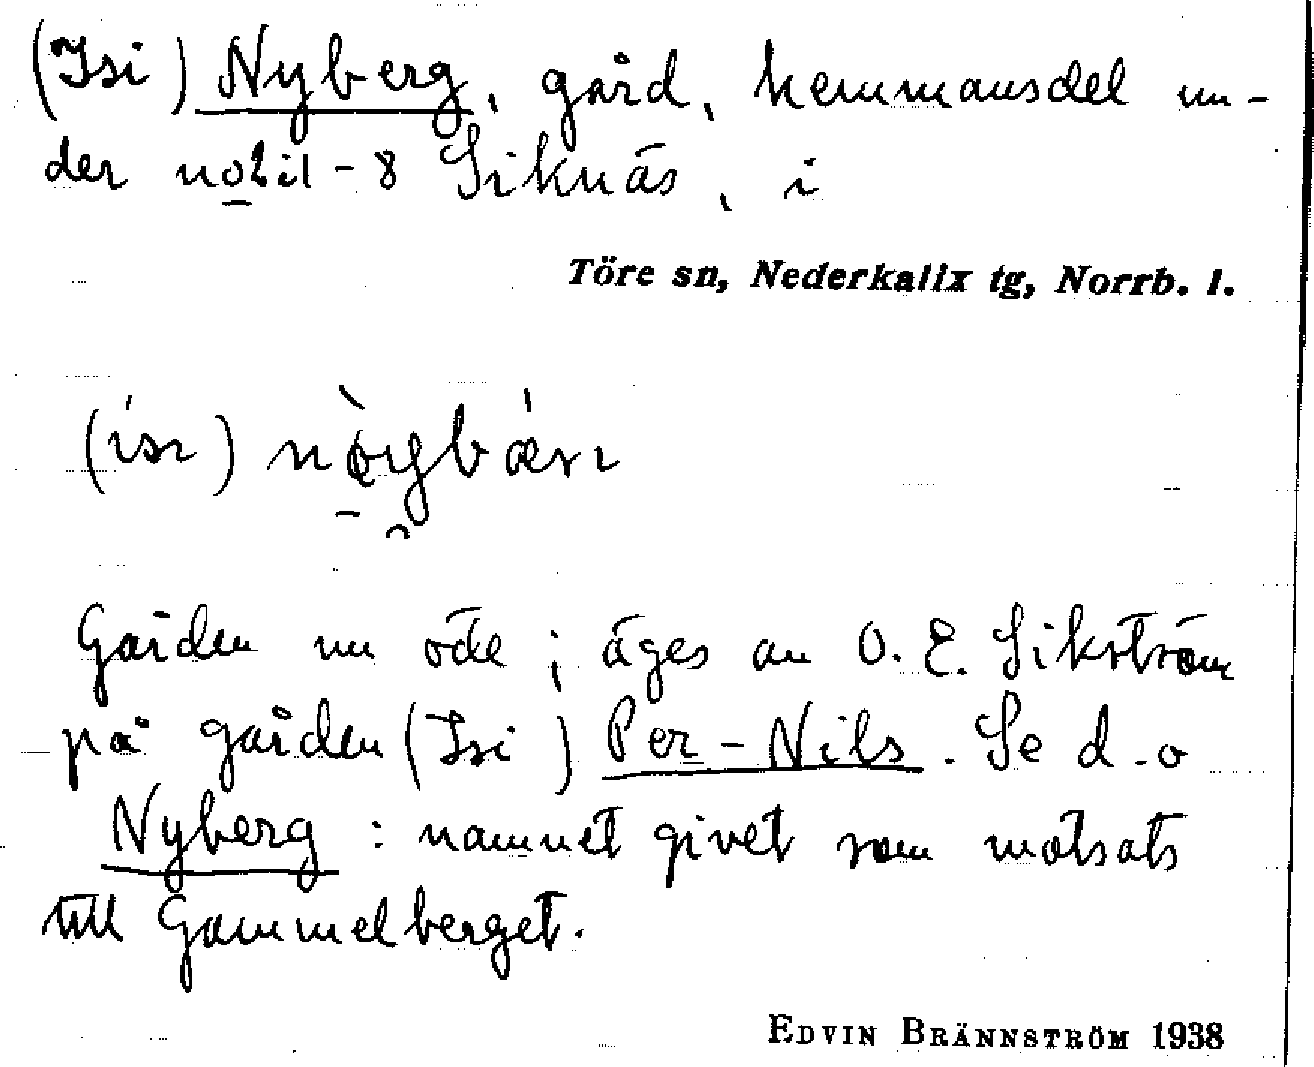 (Isi) Nyberg, gård, hemmansdel un-
der no 2 il - 8 Siknäs, i
Töre sn, Nederkalix tg, Norrb. l.
Gården nu öde; äges av O. E. Sikström
på gården (Isi) Per-Nils. Se d.o
Nyberg: namnet givet som motsats
till Gammelberget.
EDVIN BRÄNNSTRÖM 1938